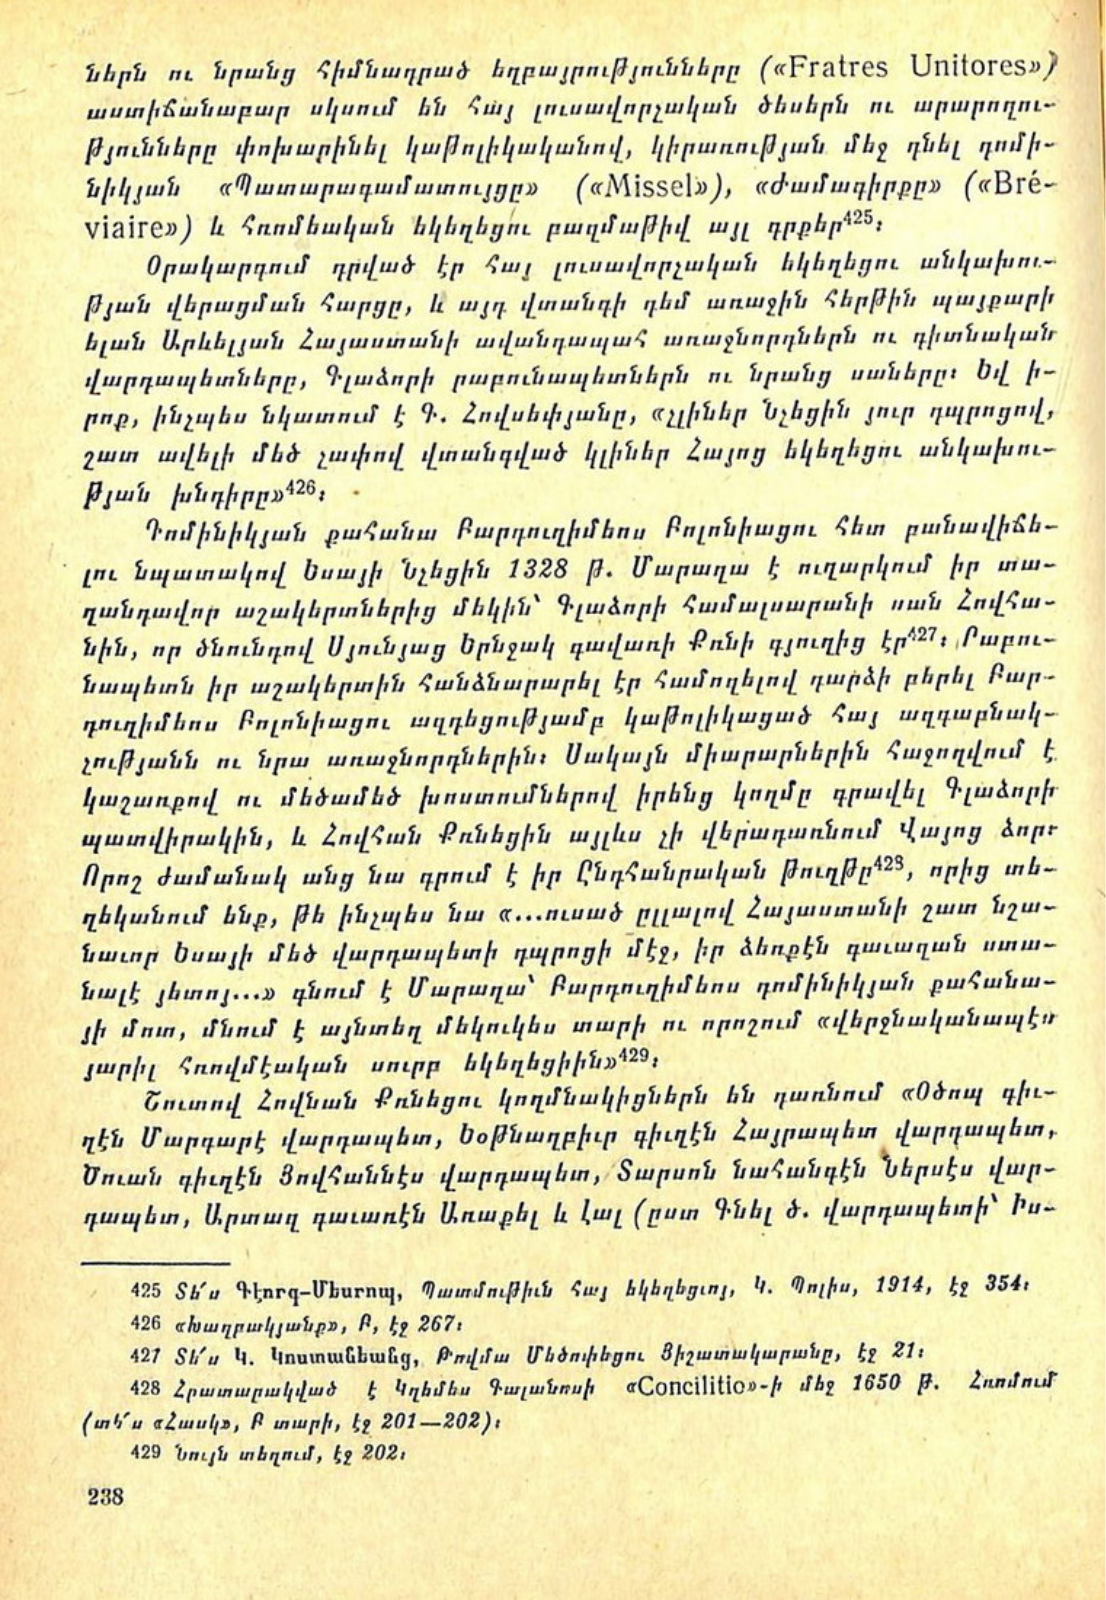 ներն ու նրանց հիմնադրած եղբայրությունները («Fratres Unitores»)
աստիճանաբար սկսում են հայ լուսավորչական ծեսերն ու արարողու-
թյունները փոխարինել կաթոլիկականով, կիրառության մեջ դնել դոմի-
նիկյան «Պատարագամատույցը» («Missel»), «Ժամագիրքը» («Bré-
viaire») և հռոմեական եկեղեցու բազմաթիվ այլ գրքեր425։
Օրակարգում դրված էր հայ լուսավորչական եկեղեցու անկախու-
թյան վերացման հարցը, և այդ վտանգի դեմ առաջին հերթին պայքարի
ելան Արևելյան Հայաստանի ավանդապահ առաջնորդներն ու գիտնական
վարդապետները, Գլաձորի րաբունապետներն ու նրանց սաները։ Եվ ի-
րոք, ինչպես նկատում է Գ. Հովսեփյանը, «չլիներ Նչեցին յուր դպրոցով,
շատ ավելի մեծ չափով վտանգված կլիներ Հայոց եկեղեցու անկախու-
թյան խնդիրը»426։
Դոմինիկյան քահանա Բարդուղիմեոս Բոլոնիացու հետ բանավիճե-
լու նպատակով Եսայի Նչեցին 1328 թ. Մարաղա է ուղարկում իր տա-
ղանդավոր աշակերտներից մեկին՝ Գլաձորի համալսարանի սան Հովհա-
նին, որ ծնունդով Սյունյաց Երնջակ գավառի Քռնի գյուղից էր427։ Րաբու-
նապետն իր աշակերտին հանձնարարել էր համոզելով դարձի բերել Բար-
դուղիմեոս Բոլոնիացու ազդեցությամբ կաթոլիկացած հայ ազդաբնակ-
չությանն ու նրա առաջնորդներին։ Սակայն միարարներին հաջողվում է
կաշառքով ու մեծամեծ խոստումներով իրենց կողմը գրավել Գլաձորի
պատվիրակին, և Հովհան Քռնեցին այլևս չի վերադառնում Վայոց ձոր։
Որոշ ժամանակ անց նա գրում է իր Ընդհանրական թուղթը428, որից տե-
ղեկանում ենք, թե ինչպես նա «...ուսած ըլլալով Հայաստանի շատ նշա-
նաւոր Եսայի մեծ վարդապետի դպրոցի մէջ, իր ձեռքէն գաւազան ստա-
նալէ յետոյ...» գնում է Մարաղա՝ Բարդուղիմեոս դոմինիկյան քահանա-
յի մոտ, մնում է այնտեղ մեկուկես տարի ու որոշում «վերջնականապէս
յարիլ հռովմէական սուրբ եկեղեցիին»429։
Շուտով Հովնան Քռնեցու կողմնակիցներն են դառնում «Օծոպ գիւ-
ղէն Մարգարէ վարդապետ, Եօթնաղբիւր գիւղէն Հայրապետ վարդապետ,
Ծուան գիւղէն Յովհաննէս վարդապետ, Տարսոն նահանգէն Ներսէս վար-
դապետ, Արտազ գաւառէն Առաքել և Հալ (ըստ Գնել ծ. վարդապետի՝ Իս-
425 Տե՛ս Գէորգ-Մեսրոպ, Պատմութիւն հայ եկեղեցւոյ, Կ. Պոլիս, 1914, էջ 354։
426 «Խաղբակյանք», Բ, էջ 267։
427 Տե՛ս Կ. Կոստանեանց, Թովմա Մեծոփեցու Յիշատակարանը, էջ 21։
428 Հրատարակված է Կղեմես Գալանոսի «Concilitio»-ի մեջ 1650 թ. Հռոմում
(տե՛ս «Հասկ», Բ տարի, էջ 201—202)։
429 Նույն տեղում, էջ 202։
238